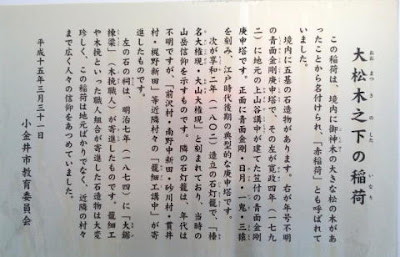 大松木之下の稲荷
おおまつきのしたいなり
この稲荷は、境内に御神木の大きな松の木があ
ったことから名付けられ、「赤稲荷」とも呼ばれて
いました。
境内に五基の石造物があります。右が年号不明
の青面金剛庚申塔で、その左が寛政四年（一七九
二）に地元の上山谷講中が建てた笠付の青面金剛
庚申塔です。正面に青面金剛・日月・一鬼・三猿
を刻み、江戸時代後期の典型的な庚申塔です。
次が享和二年（一八〇二）造立の石灯籠で、「榛
名大権現・大山大権現」と刻まれており、当時の
山岳信仰を示すものです。隣の石灯籠は、年代は
不明ですが、「前沢村・南野中新田・砂川村・貫井
村・梶野新田」等近隣村々の「籠細工講中」が寄
進したものです。
左の石の祠は、明治七年（一八七四）に「大鋸
棟梁」（木挽職人）が寄進したものです。籠細工
や木挽といった職人組合が寄進した石造物は大変
珍しく、この稲荷は地元ばかりでなく、近隣の村々
まで広く人々の信仰をあつめていました。
平成十五年三月三十一日
小金井市教育委員会